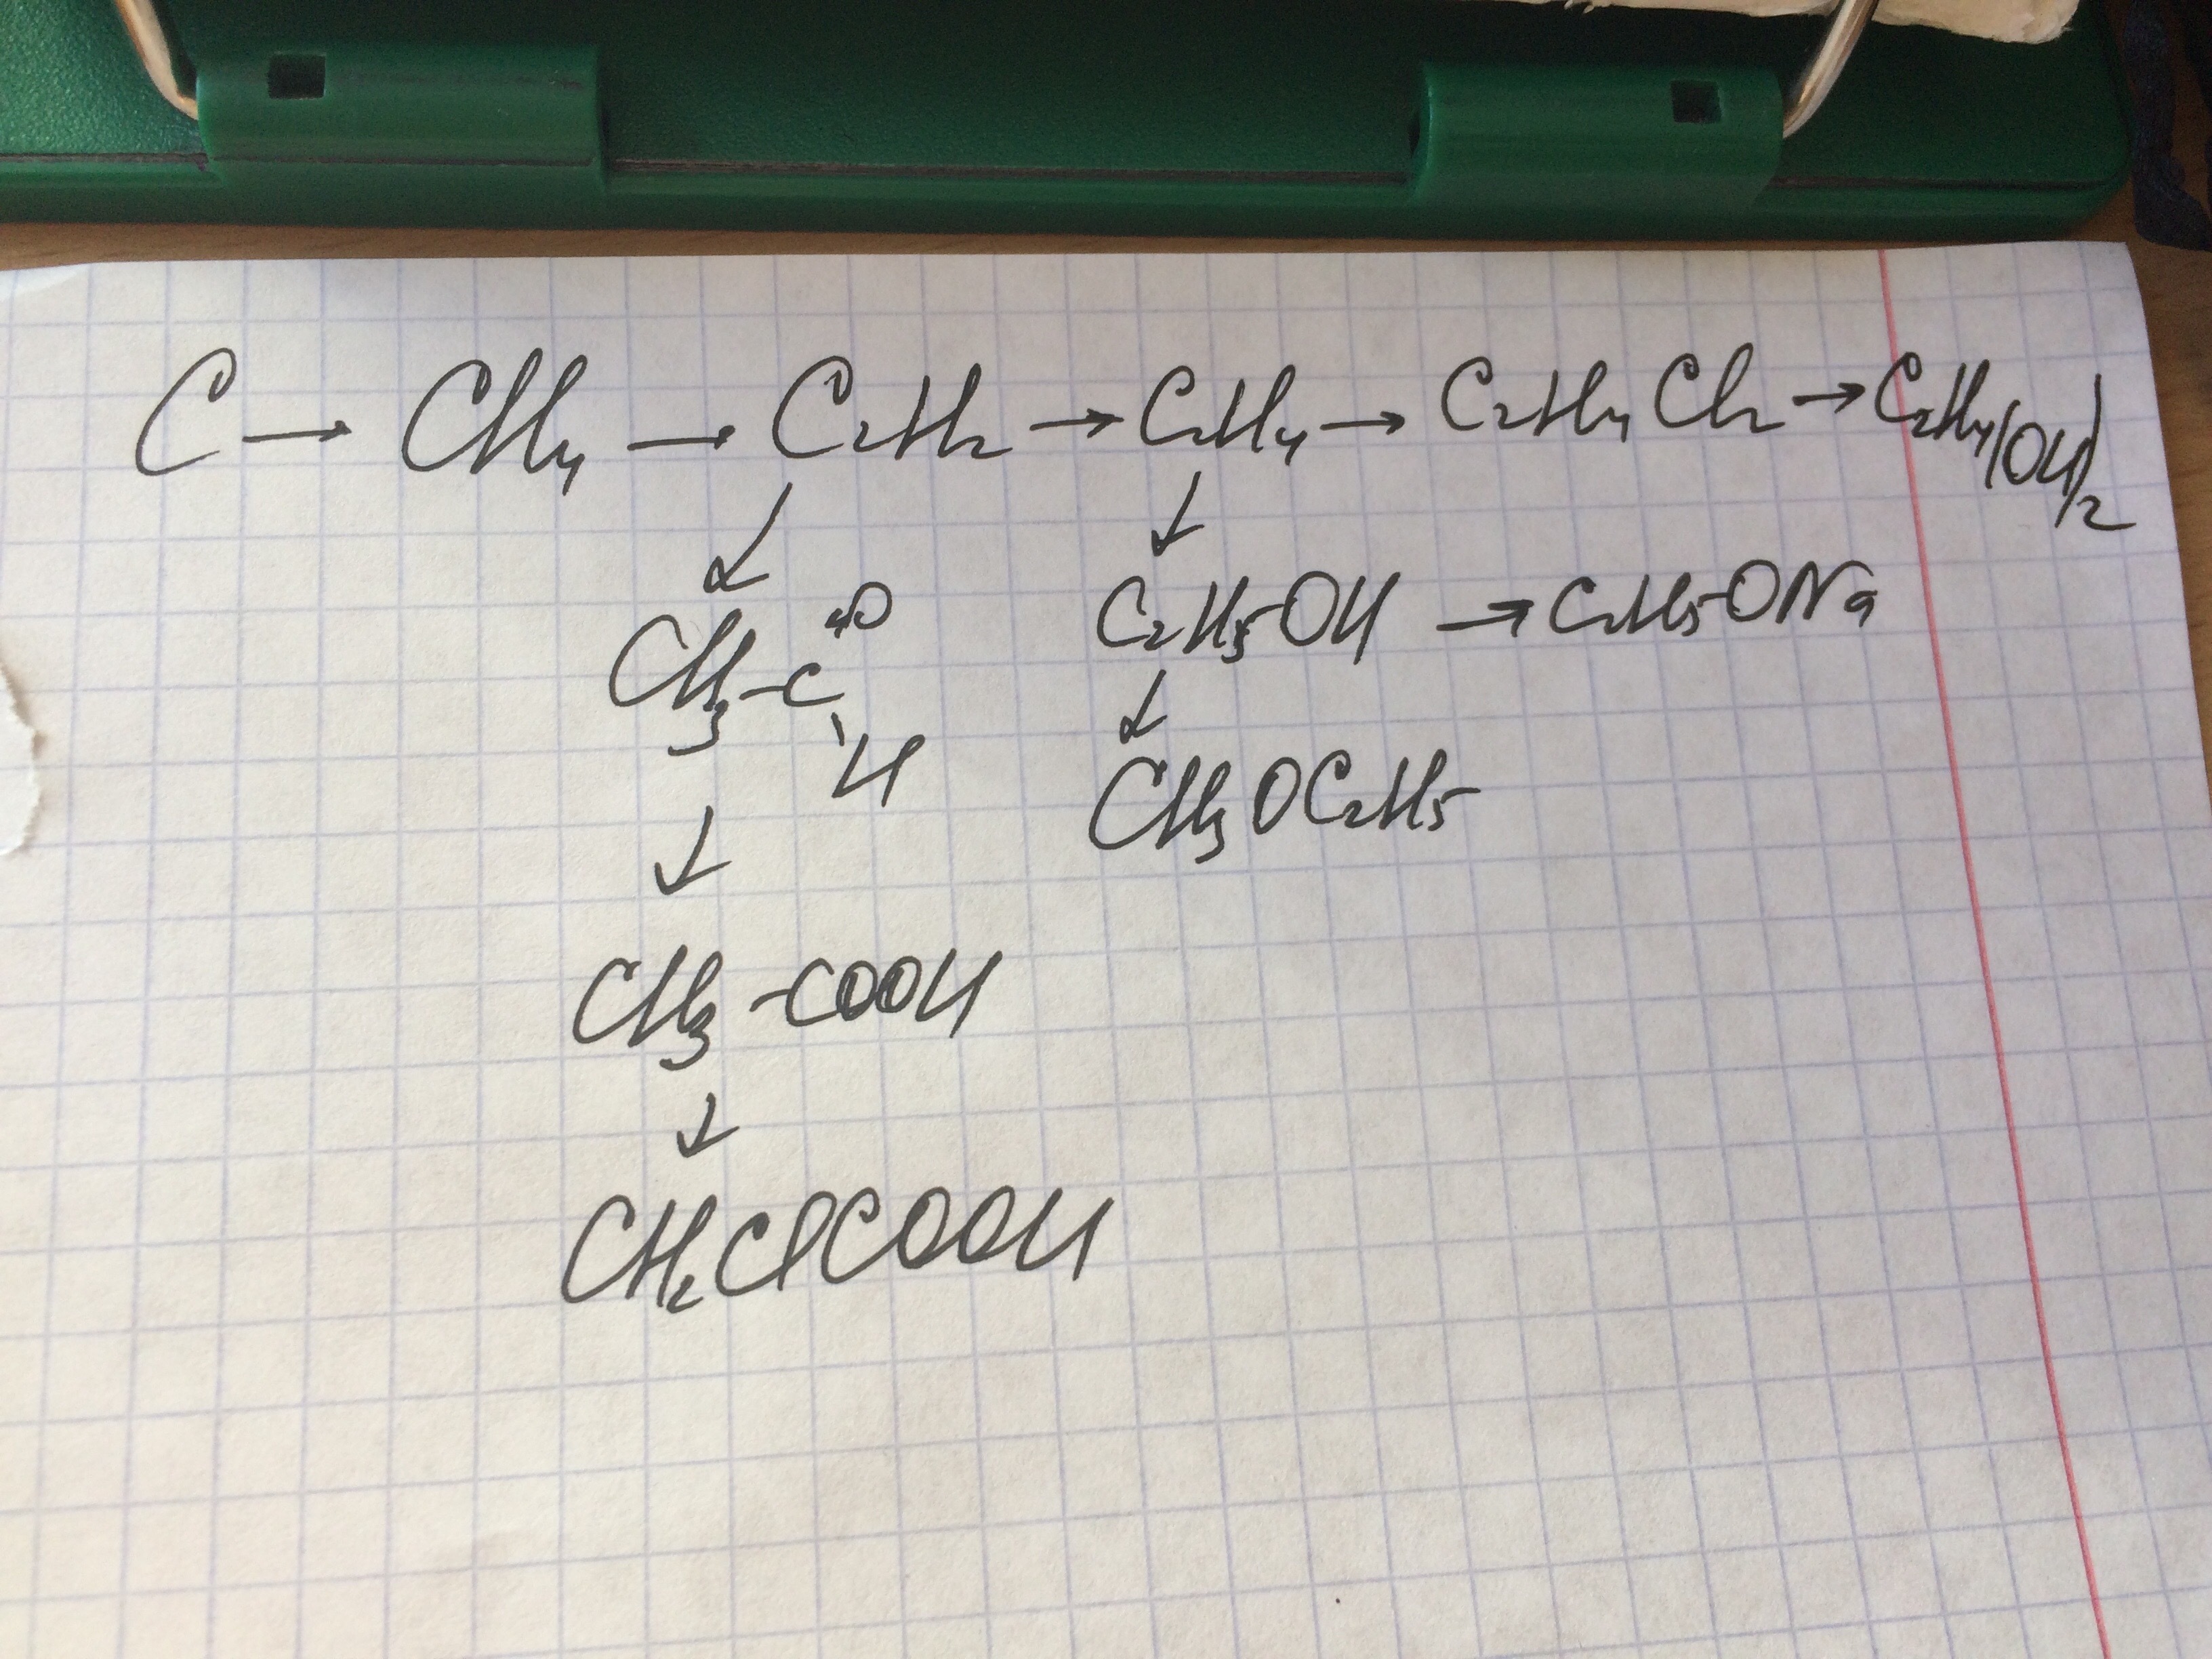 C → CH₄ → C₂H₂ → C₂H₄ → C₂H₄Cl₂ → C₂H₄(OH)₂
↓ ↓
CH₃-C
=O
\H
C₂H₅OH → C₂H₅ONa
↓ ↓
CH₃-COOH
CH₃OC₂H₅
↓
CH₂ClCOOH